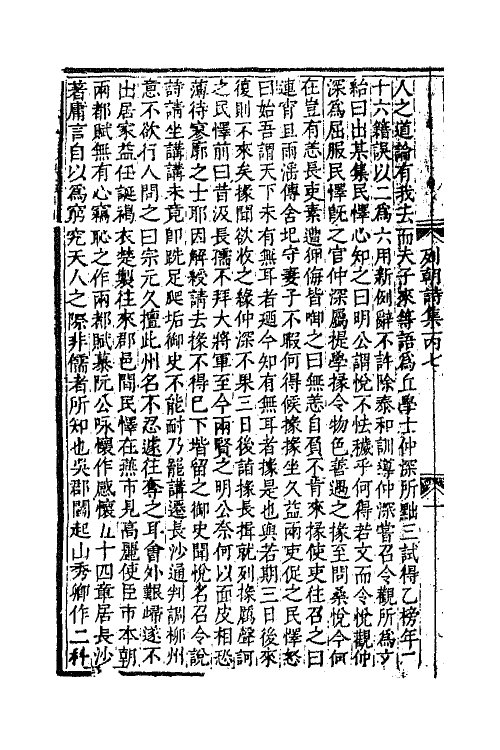 人之道論有我去而夫子來等語為丘學士仲深所黜三試得乙榜年一
十六籍誤以二為六用新例辭不許除泰和訓導仲深嘗召令觀所為文
紿曰出某集民懌心知之曰明公謂悅不怯穢乎何得若文而令悅觀仲
深為屈服民懌旣之官仲深屬提學掾令物色善遇之掾至問桑悅今何
在豈有恙長吏素遭侮皆啣之曰無恙自負不肯來掾使吏往召之曰
連宵旦雨淫傳舍圮守妻子不暇何得候掾掾坐久益兩吏促之民懌怒
曰始吾謂天下未有無耳者廼今知有無耳者掾是也與若期三日後來
復則不來矣掾聞欲收之緣仲深不果三日後詣掾長揖就列掾厲聲訶
之民懌前曰昔汲長孺不拜大將軍至今兩賢之明公奈何以面皮相恐
薄待寥廓之士耶因解綬請去掾不得已下堦留之御史聞悅名召令說
詩請坐講講未竟卽跣足爬垢御史不能耐乃罷講遷長沙通判調柳州
意不欲行人問之曰宗元久擅此州名不忍遽往奪之耳會外艱歸遂不
出居家益任誕褐衣楚製往來郡邑間民懌在燕市見高麗使臣市本朝
兩都賦無有心竊恥之作兩都賦慕阮公咏懷作感懷五十四章居長沙
著庸言自以為窮究天人之際非儒者所知也吳郡閻起山秀卿作二科
列朝詩集丙七